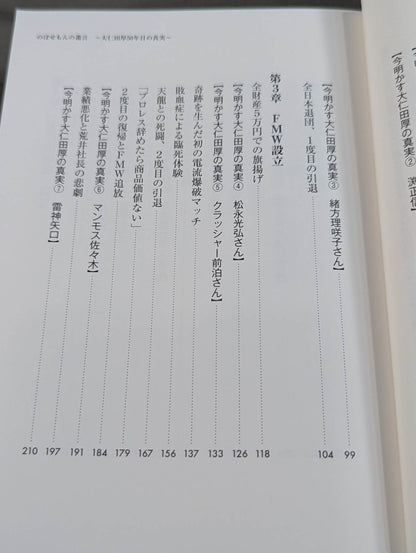 のぼせもんの遺言　～大仁田厚50年目の真実～
全日本退団、1度目の引退 99
【今明かす大仁田厚の真実③　緒方理咲子さん】 104
第3章　FMW設立
全財産5万円での旗揚げ 118
【今明かす大仁田厚の真実④　松永光弘さん】 126
【今明かす大仁田厚の真実⑤　クラッシャー前泊さん】 133
奇跡を生んだ初の電流爆破マッチ 137
敗血症による臨死体験 156
天龍との死闘、2度目の引退 167
「プロレス辞めたら商品価値ない」
2度目の復帰とFMW追放 179
【今明かす大仁田厚の真実⑥　マンモス佐々木】 184
業績悪化と荒井社長の悲劇 191
197
【今明かす大仁田厚の真実⑦　雷神矢口】 210